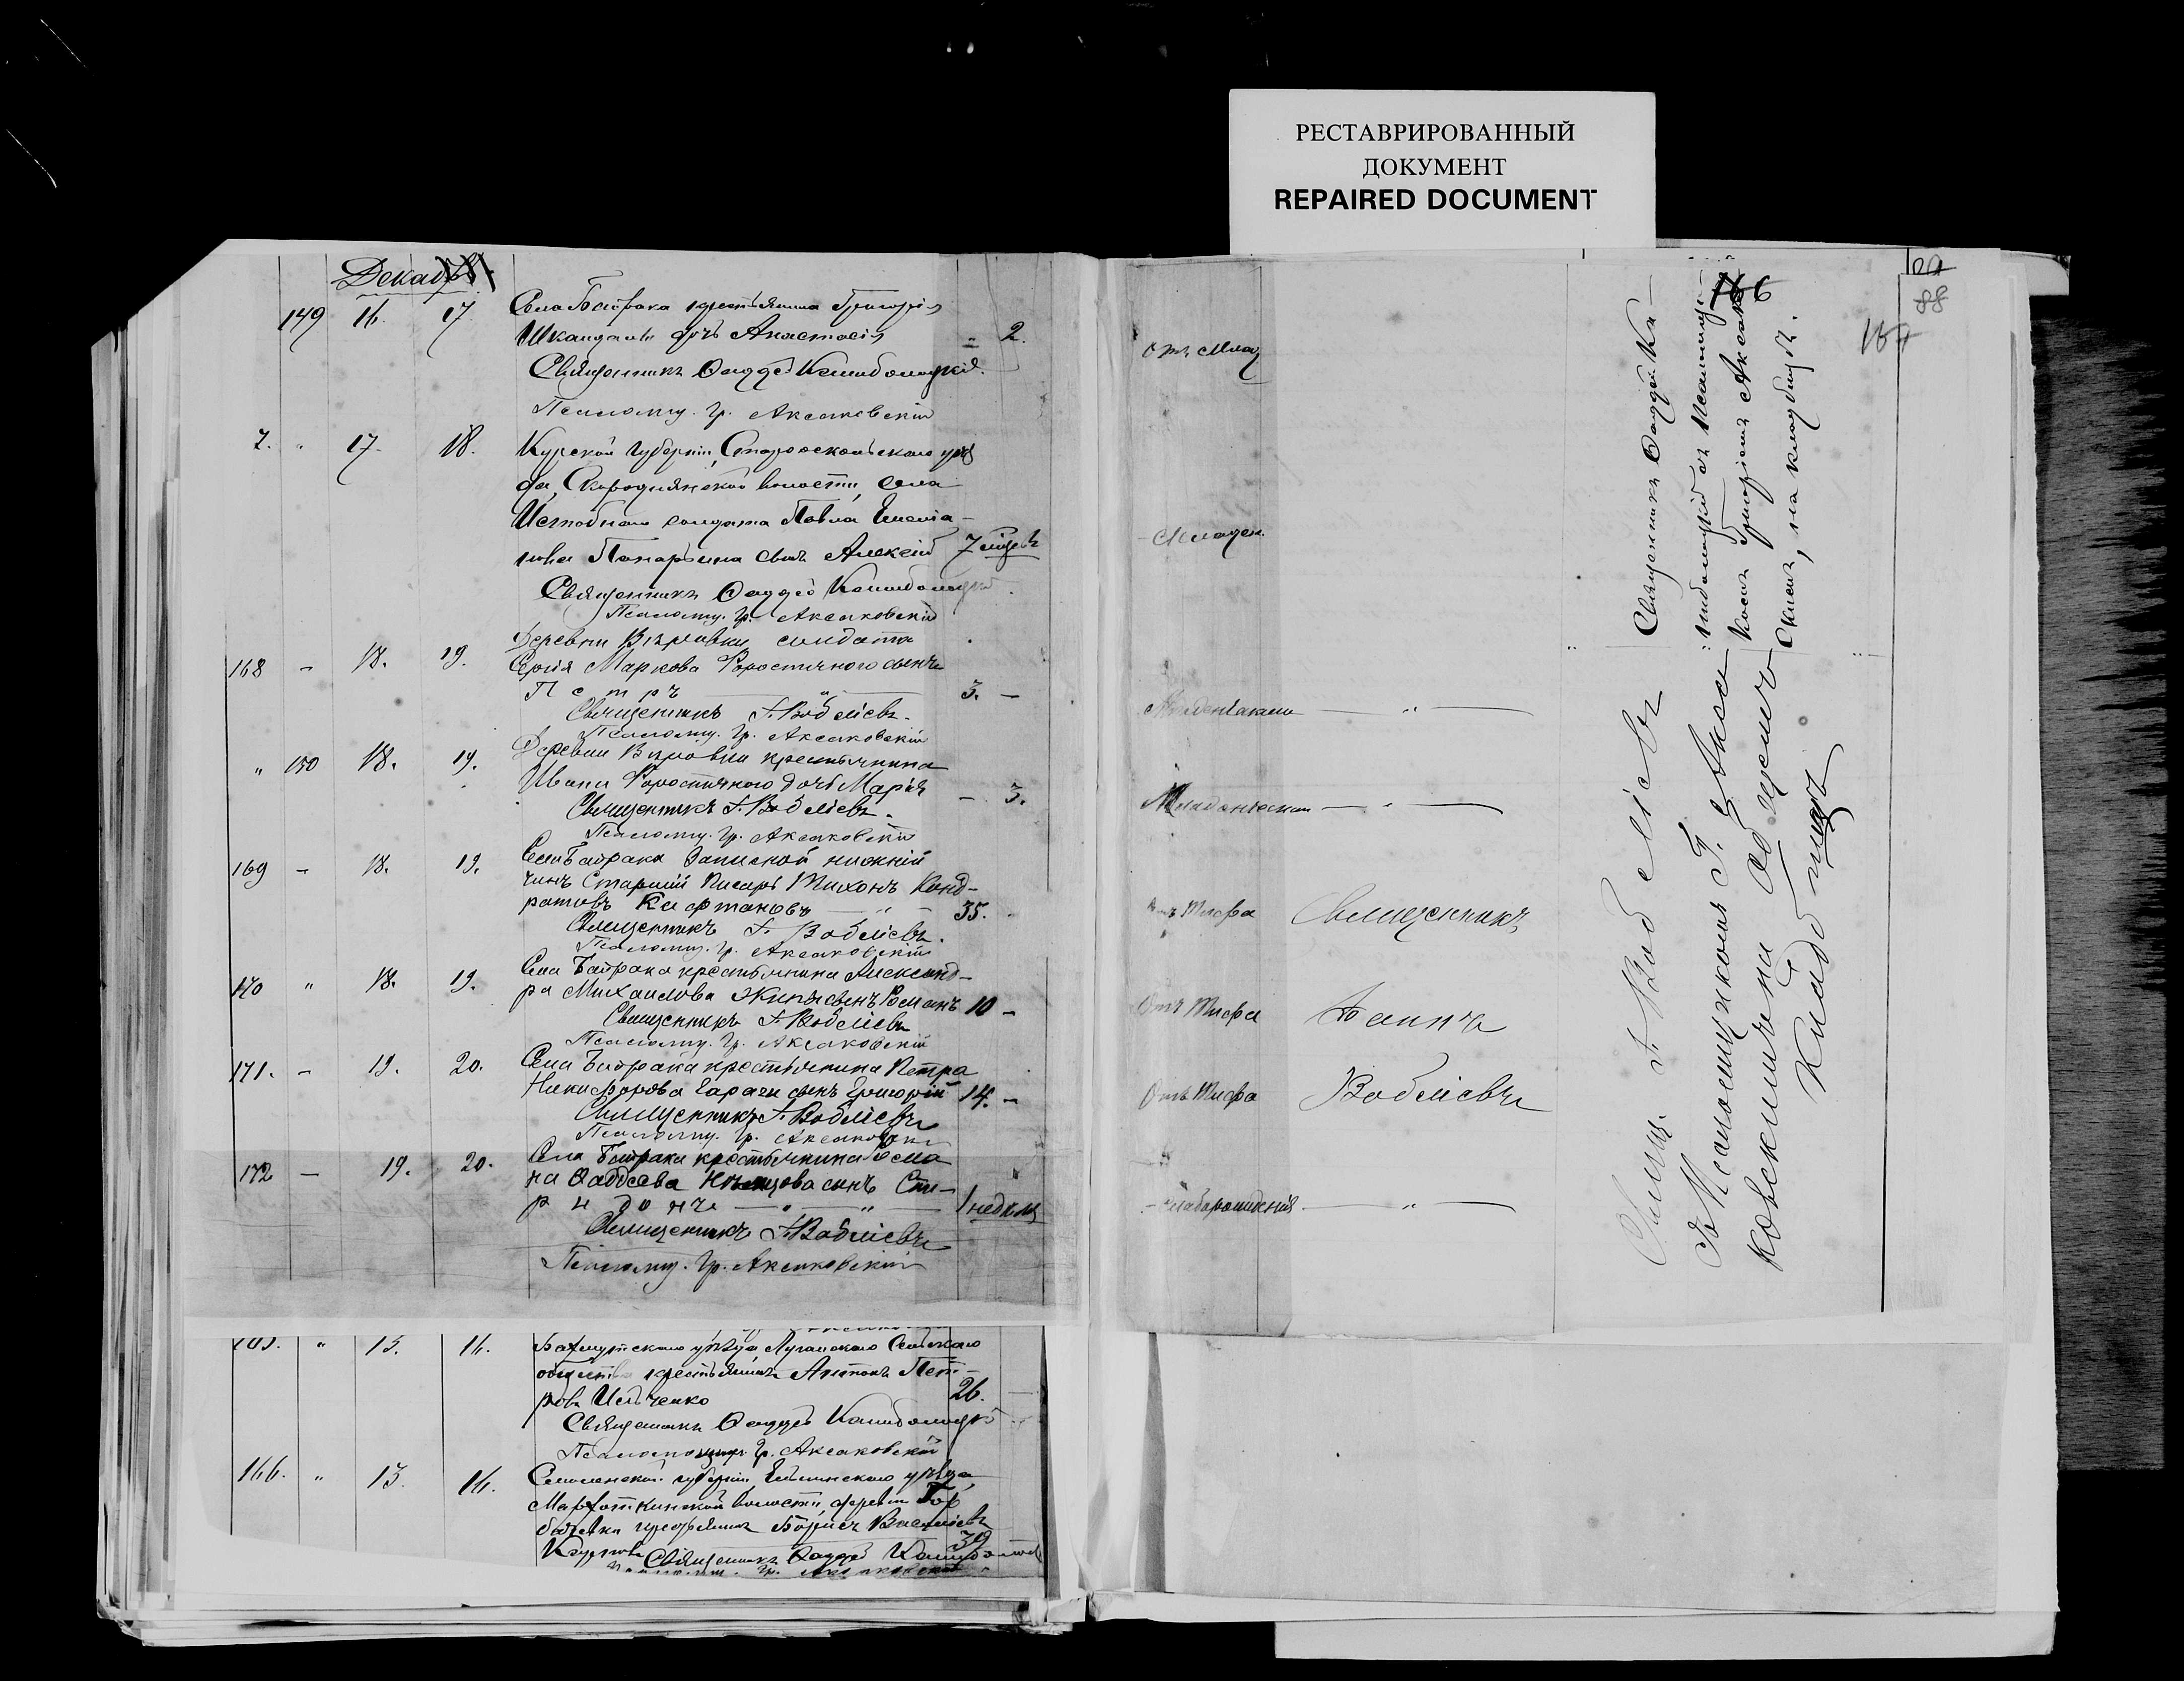 РЕСТАВРИРОВАННЫЙ
ДОКУМЕНТ
REPAIRED DOCUMENT
Декабрь
149 16. 17. Села Байрака крестьянина Григорія
дочь Анастасія " 2.
Священникъ Фаддей
Псаломщ. Гр. Аксаковскій
7. " 17. 18. Курской губерніи, Старооскольскаго уѣз
да, Скороднянской волости, села
Истобнаго солдата Павла Емелья-
нова Понарьина сынъ Алексѣй 7 мѣсяц
Священникъ Фаддей
Псаломщ. Гр. Аксаковскій
168 – 18. 19. Деревни Вѣровки солдата
Сергія Маркова Форостянаго сынъ
Петръ — " — 3. –
Священникъ І. Воблієвъ.
Псаломщ. Гр. Аксаковскій
" 150 18. 19. Деревни Вѣровки крестьянина
Ивана Форостянаго дочь Марія – 3.
Священникъ І. Воблієвъ.
Псаломщ. Гр. Аксаковскій
169 – 18. 19. Села Байрака Запасной нижній
чинъ Старшій Писарь Тихонъ Конд-
ратовъ Кафтановъ — " – 35.
Священникъ І. Воблієвъ.
Псаломщ. Гр. Аксаковскій
170 " 18. 19. Села Байрака крестьянина Александ-
ра Михаилова сынъ Романъ 10 –
Священникъ І. Воблієвъ
Псаломщ. Гр. Аксаковскій
171. – 19. 20. Села Байрака крестьянина Петра
Никифорова Гарачи сынъ Григорій 14. –
Священникъ І. Воблієвъ
Псаломщ. Гр. Аксаковскій
172 – 19. 20. Села Байрака крестьянина Рома
на Фаддеева Нѣмцова сынъ Спи-
ридонъ — " — " — 1 недѣл
Священникъ І. Воблієвъ
Псаломщ. Гр. Аксаковскій
165. " 15. 16. Бахмутскаго уѣзда, Луганскаго Сельскаго
общества крестьянинъ Антонъ Пет-
ровъ Ильченко 26. –
Священникъ Фаддей
Псаломщикъ Гр. Аксаковскій
166. " 15. 16. Смоленской губерніи, Ельнинскаго уѣзда,
Мархоткинской волости, деревни Гор
бачевки крестьянинъ Борисъ Васильевъ
39
Священникъ Фаддей
Псаломщ. Гр. Аксаковскій
88
167
Отъ
Младен.
Младенческ. — " —
Младенческ. — " —
Отъ Тифа Священникъ
Отъ Тифа Іоаннъ
Отъ Тифа Воблієвъ
Слаборожденія — " —
Священникъ Фаддей Ка-
съ Псаломщи-
комъ Григоріемъ Аксаков
скимъ, на кладбищѣ.
Священ. І. Воблієвъ
съ Псаломщикомъ Г. Акса
ковскимъ на общемъ
Кладбищѣ